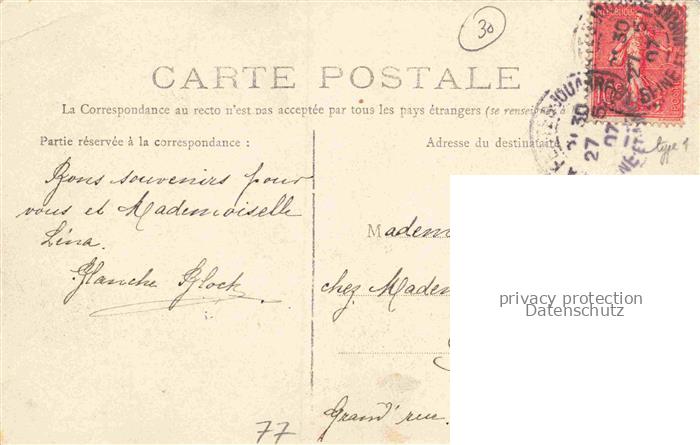 30
CARTE POSTALE
La Correspondance au recto n'est pas acceptée par tous les pays étrangers (se renseign
Partie réservée à la correspondance :
Adresse du destinataire
type 1
Bons souvenirs pour
vous et Mademoiselle
Léna.
Blanche Block
Madem
chez Madem
Grand' rue.
77
privacy protection
Datenschutz
30
27
5
07
30
27
5
07